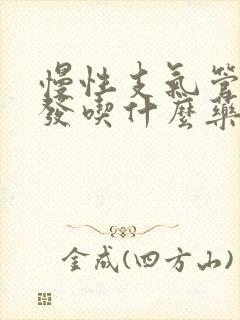 慢性支氣管
發喫什麼藥
金成(四方山)